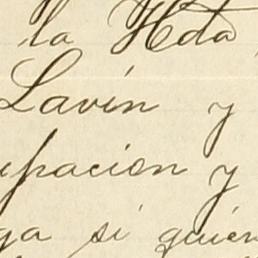 la Hda
Lavín y
upación y
ga si quién